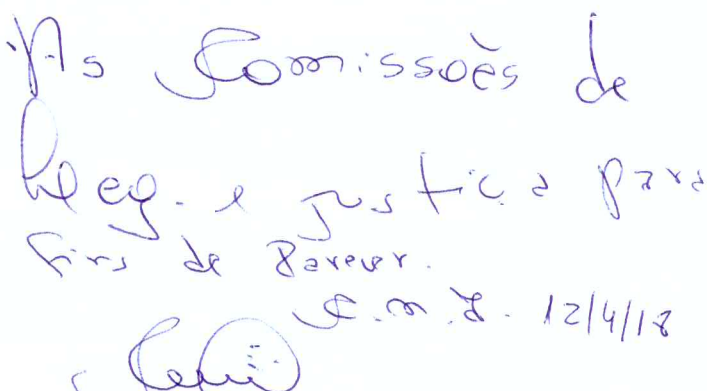 As Comissoẽs de
Leg. e Justiça para
fins de Parecer.
C.M.J. 12/4/18